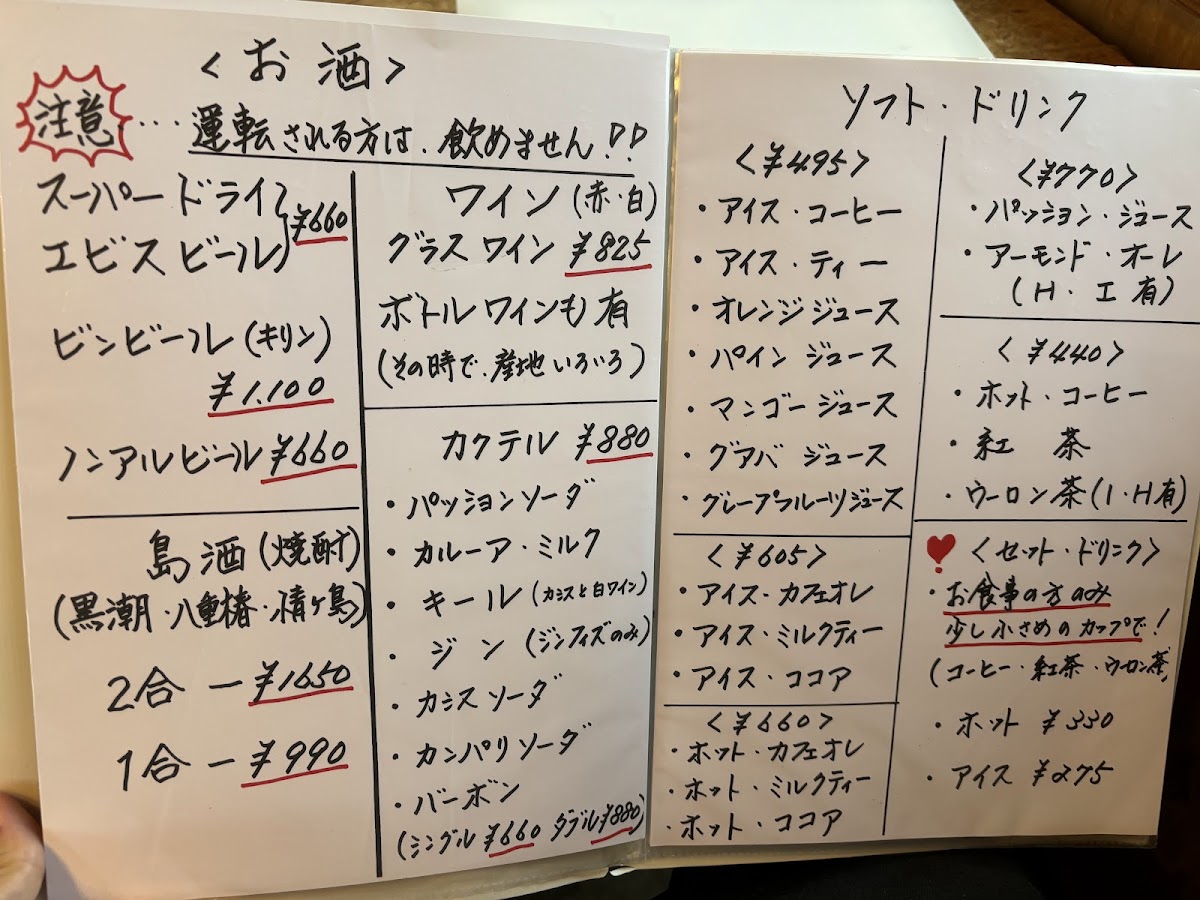 <お酒>
注意‥‥運転される方は、飲めません!!
スーパードライ
エビスビール
¥660
ビンビール(キリン)
¥1.100
ノンアルビール ¥660
島酒(焼酎)
(黒潮・八重椿・情ヶ島)
2合ー¥1650
1合ー¥990
ワイン(赤・白)
グラスワイン ¥825
ボトルワインも有
(その時で、産地いろいろ)
カクテル ¥880
・パッションソーダ
・カルーア・ミルク
・キール(カシスと白ワイン)
・ジン(ジンフィズのみ)
・カシスソーダ
・カンパリソーダ
・バーボン
(シングル ¥660 ダブル¥880)
ソフト・ドリンク
<¥495>
・アイス・コーヒー
・アイス・ティー
・オレンジジュース
・パインジュース
・マンゴージュース
・グアバジュース
・グレープフルーツジュース
<¥605>
・アイス・カフェオレ
・アイス・ミルクティー
・アイス・ココア
<¥660>
・ホット・カフェオレ
・ホット・ミルクティー
・ホット・ココア
<¥770>
・パッション・ジュース
・アーモンド・オーレ
(H・I有)
<¥440>
・ホット・コーヒー
・紅茶
・ウーロン茶(I・H有)
<セット・ドリンク>
・お食事の方のみ
少し小さめのカップで!
(コーヒー・紅茶・ウーロン茶)
・ホット ¥330
・アイス ¥275